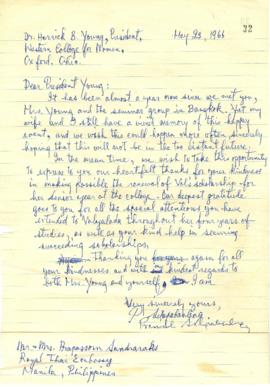 32
Dr. Herrick B. Young, President,
May 23, 1966
Western College for Women,
Oxford, Ohio.
Dear President Young:
It has been almost a year now since we met you,
Mrs. Young and the seminar group in Bangkok. Yet my
wife and I still have a vivid memory of this happy
event, and we wish this could happen more often, sincerely
hoping that this will not be in the too distant future.
In the mean time, we wish to take this opportunity
to express to you our heartfelt thanks for your kindness
in making possible the renewal of Val's scholarship for
her senior year at the college. Our deepest gratitude
goes to you for all the special attentions you have
extended to Valayalada throughout her four years of
studies, as well as your kind help in securing
succeeding scholarships.
Thanking you again for all
your kindnesses and with kindest regards to
both Mrs. Young and yourself, I am
Very sincerely yours,
Mr & Mrs. Prapassorn Sandharaks
Royal Thai Embassy
Manila, Philippines